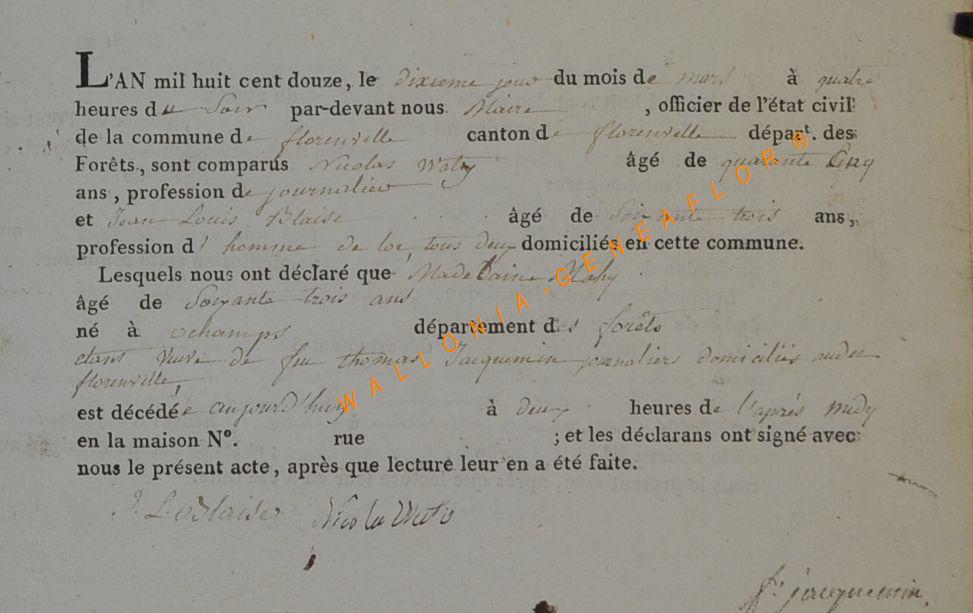 L'AN mil huit cent douze, le dixieme jour du mois de mars à quatre
heures du Soir par-devant nous Maire , officier de l'état civil
de la commune de florenville canton de florenville départ. des
Forêts, sont comparus Nicolas Watry âgé de quarante Cinq
ans, profession de journalier
et Jean Louis Blaise âgé de Soixante trois ans,
profession d'homme de loi, tous deux domiciliés en cette commune.
Lesquels nous ont déclaré que Madelaine Mahy
âgé de Soixante trois ans
né à ochamps département des forêts
etant Veuve de feu thomas Jacquemin journaliers domiciliés
florenville,
est décédée aujourd'huy à deux heures de l'après midy
en la maison N°. rue ; et les déclarans ont signé avec
nous le présent acte, après que lecture leur en a été faite.
J. L. Blaise Nicolas
jacquemin
WALLONIA-GENEAFLOR ©